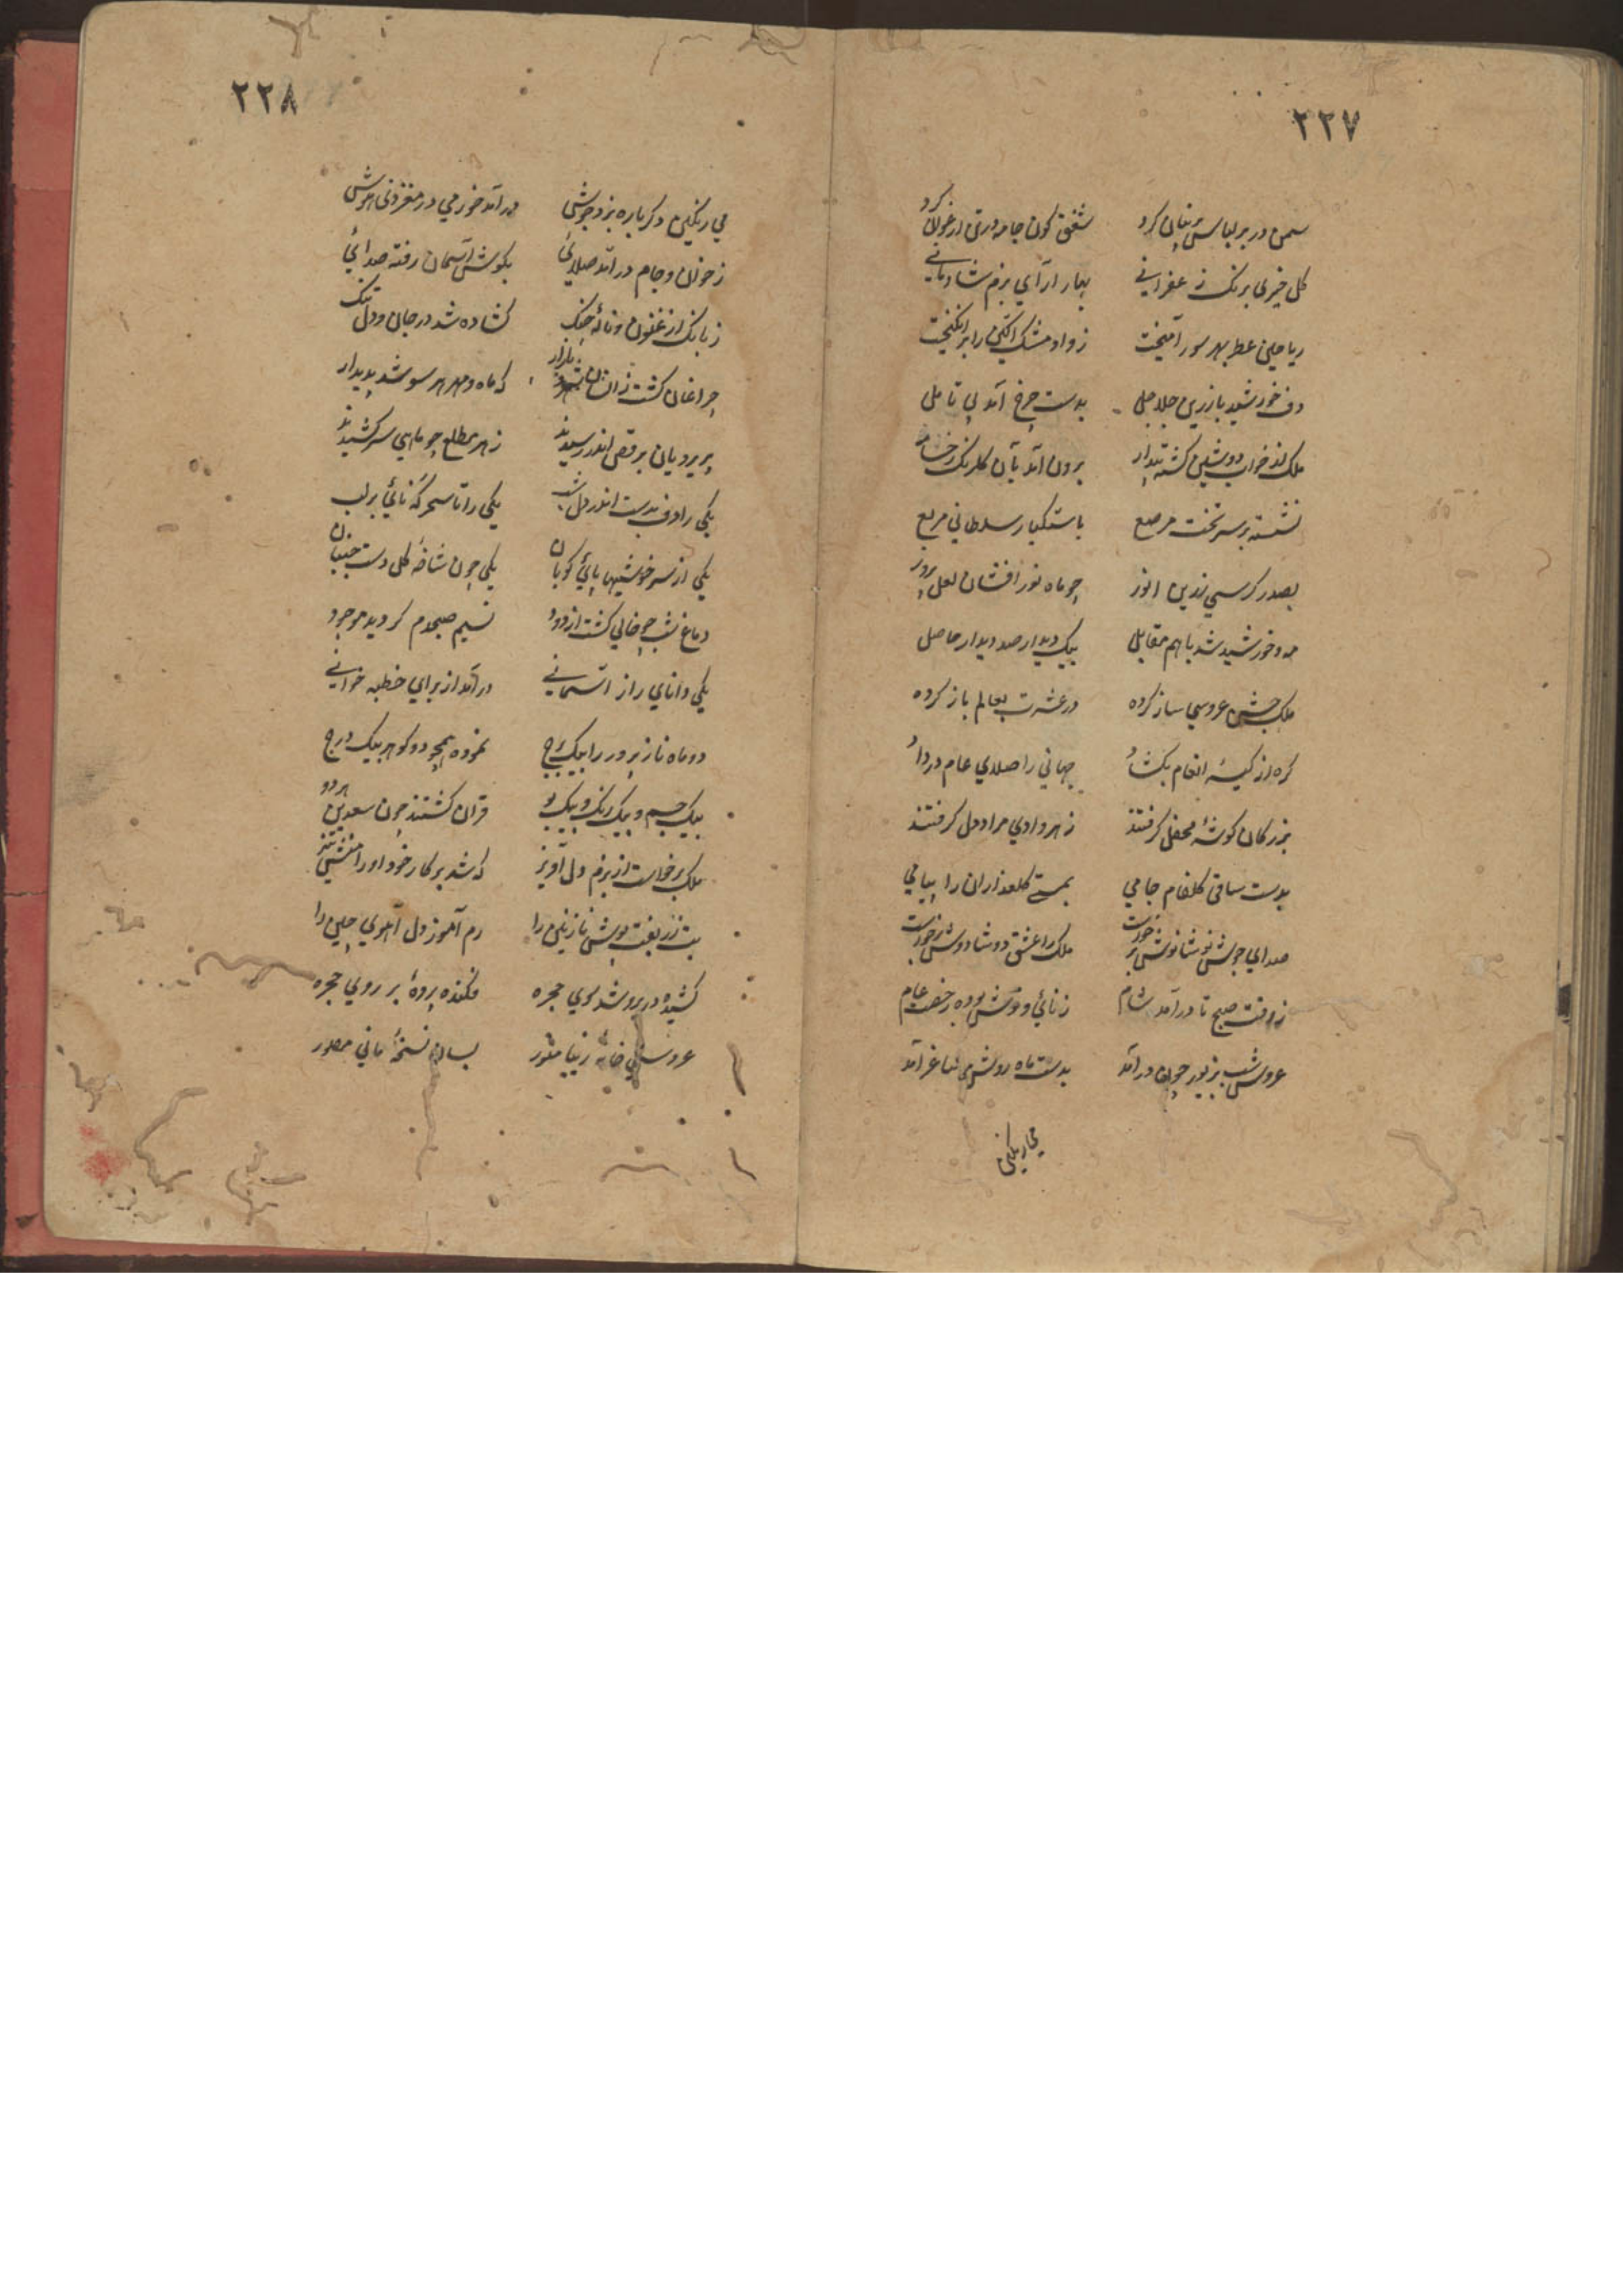 ٢٢٧
سمن در بر لباس پرنیان کرد شفق کون جامه در تن ارغوان کرد
کل خیری برنک زعفرانی بهار آرای بزم شادمانی
ریاحین عطر بهر سور آمیخت
دف خورشید با زرین جلاجل بدست چرخ آمد بی تامل
ملک از خواب دوشین کشته بیدار برون آمد بآن کلرنک رخسار
نشسته بر سر تخت مرصع باستکبار سلطانی مربع
بصدر کرسی زرین انور چو ماه نور افشان لعل پرور
مه و خورشید شد با هم مقابل بیک دیدار صد دیدار حاصل
ملک جشن عروسی ساز کرده در عشرت بعالم باز کرده
کره از کیسهٔ انعام بکشاد جهانی را صلای عام در داد
بزرکان کوشهٔ محفل کرفتند ز هر وادی مراد دل کرفتند
بدست ساقی کلفام جامی بمستی کلعذاران را پیامی
صدای جوش نوشانوش برخورست ملک را عشق دوشادوش برخورست
ز وقت صبح تا درآمد شام
عروس شب بزیور چون درآمد بدست ماه روشن می بساغر آمد
می رنکین
٢٢٨
می رنکین دکرباره بزد جوش درآمد خورمی در مغز و نی هوش
ز خوان و جام درآمد صلائی بکوش آسمان رفته صدائی
ز بانک ارغنون و نالهٔ چنک کشاده شد در جان و دل تنک
چراغان کشت زانسان بازار که ماه و مهر هر سو شد پدیدار
پریرویان برقص اندر رسیدند ز هر مطلع چو ماهی سر کشیدند
یکی را دف بدست اندر دل شب یکی را تا سحرکه نائی بر لب
یکی از سرخوشیها پائی کوبان یکی چون شاخهٔ کل دست جنبان
دماغ شب چو خالی کشت از دود نسیم صبحدم کردید موجود
یکی دانای راز آسمانی درآمد از برای خطبه خوانی
دو ماه نازپرور را بیک برج نموده همچو دو کوهر بیک درج
بیک جسم و بیک رنک و بیک بو قران کشتند چون سعدین هر دو
ملک برخواست از بزم دل آویز که شد بر کار خود او را
بت زربفت پوش نازنین را رم آموز دل آهوی چین را
کشیده در بر و شد سوی حجره فکنده پردهٔ بر روی حجره
عروسی خانهٔ زیبا منور بسان نسخهٔ مانی مصور